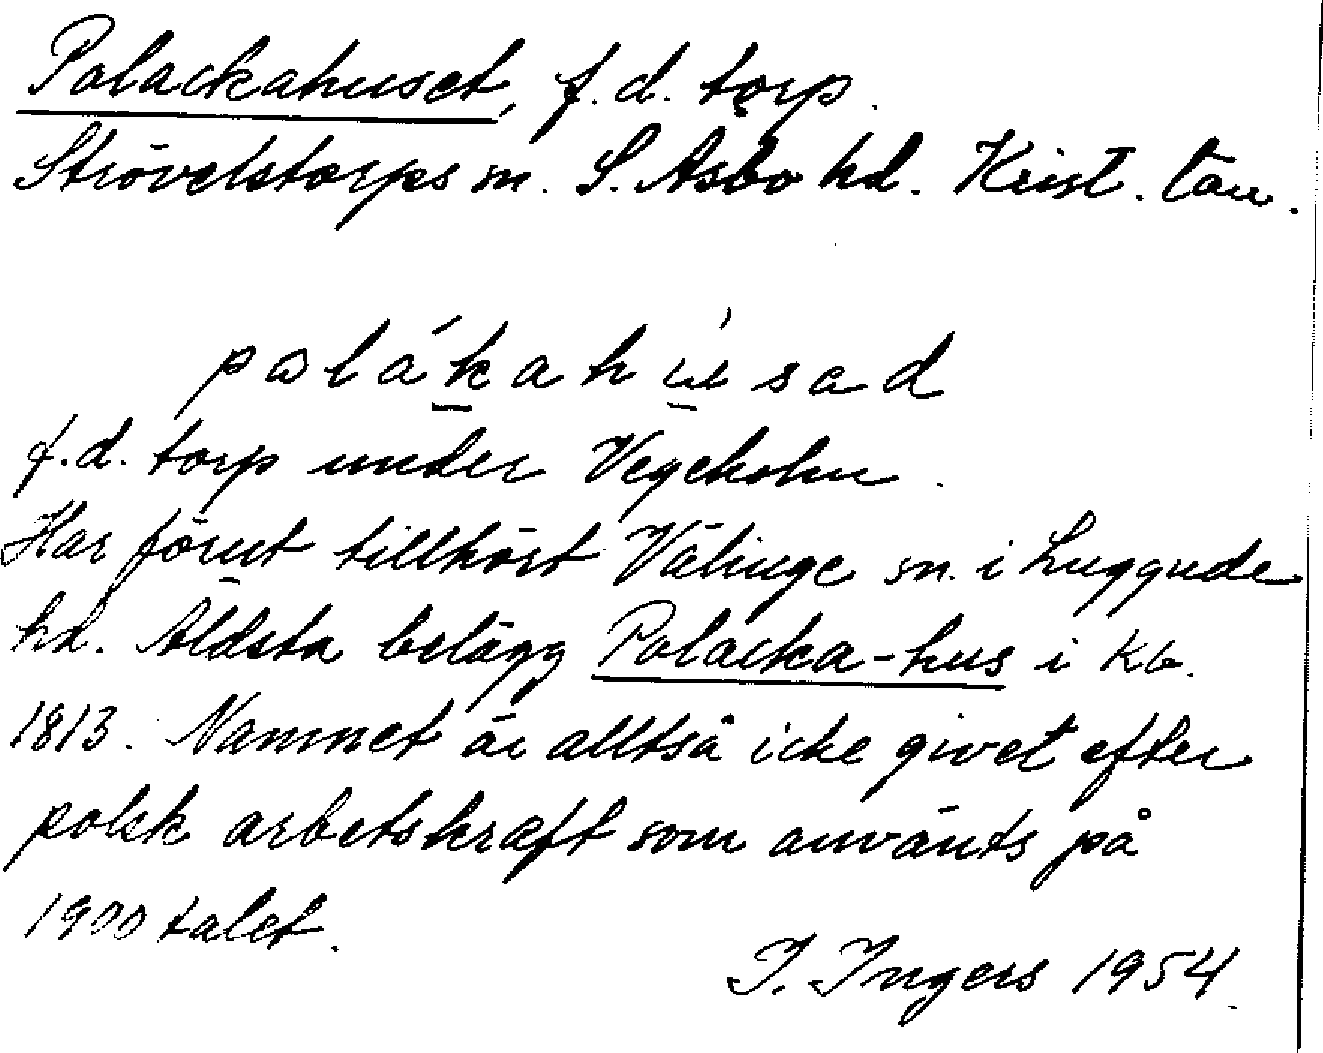 Polackahuset, f.d. torp.
Strövelstorps sn. S. Åsbo hd. Krist. län.
pɷlákahùsad
f.d. torp under Vegeholm.
Har förut tillhört Välinge sn. i Luggude
hd. Äldsta belägg Polacka-hus i kb.
1813. Namnet är alltså icke givet efter
polsk arbetskraft som använts på
1900 talet.
I. Ingers 1954.